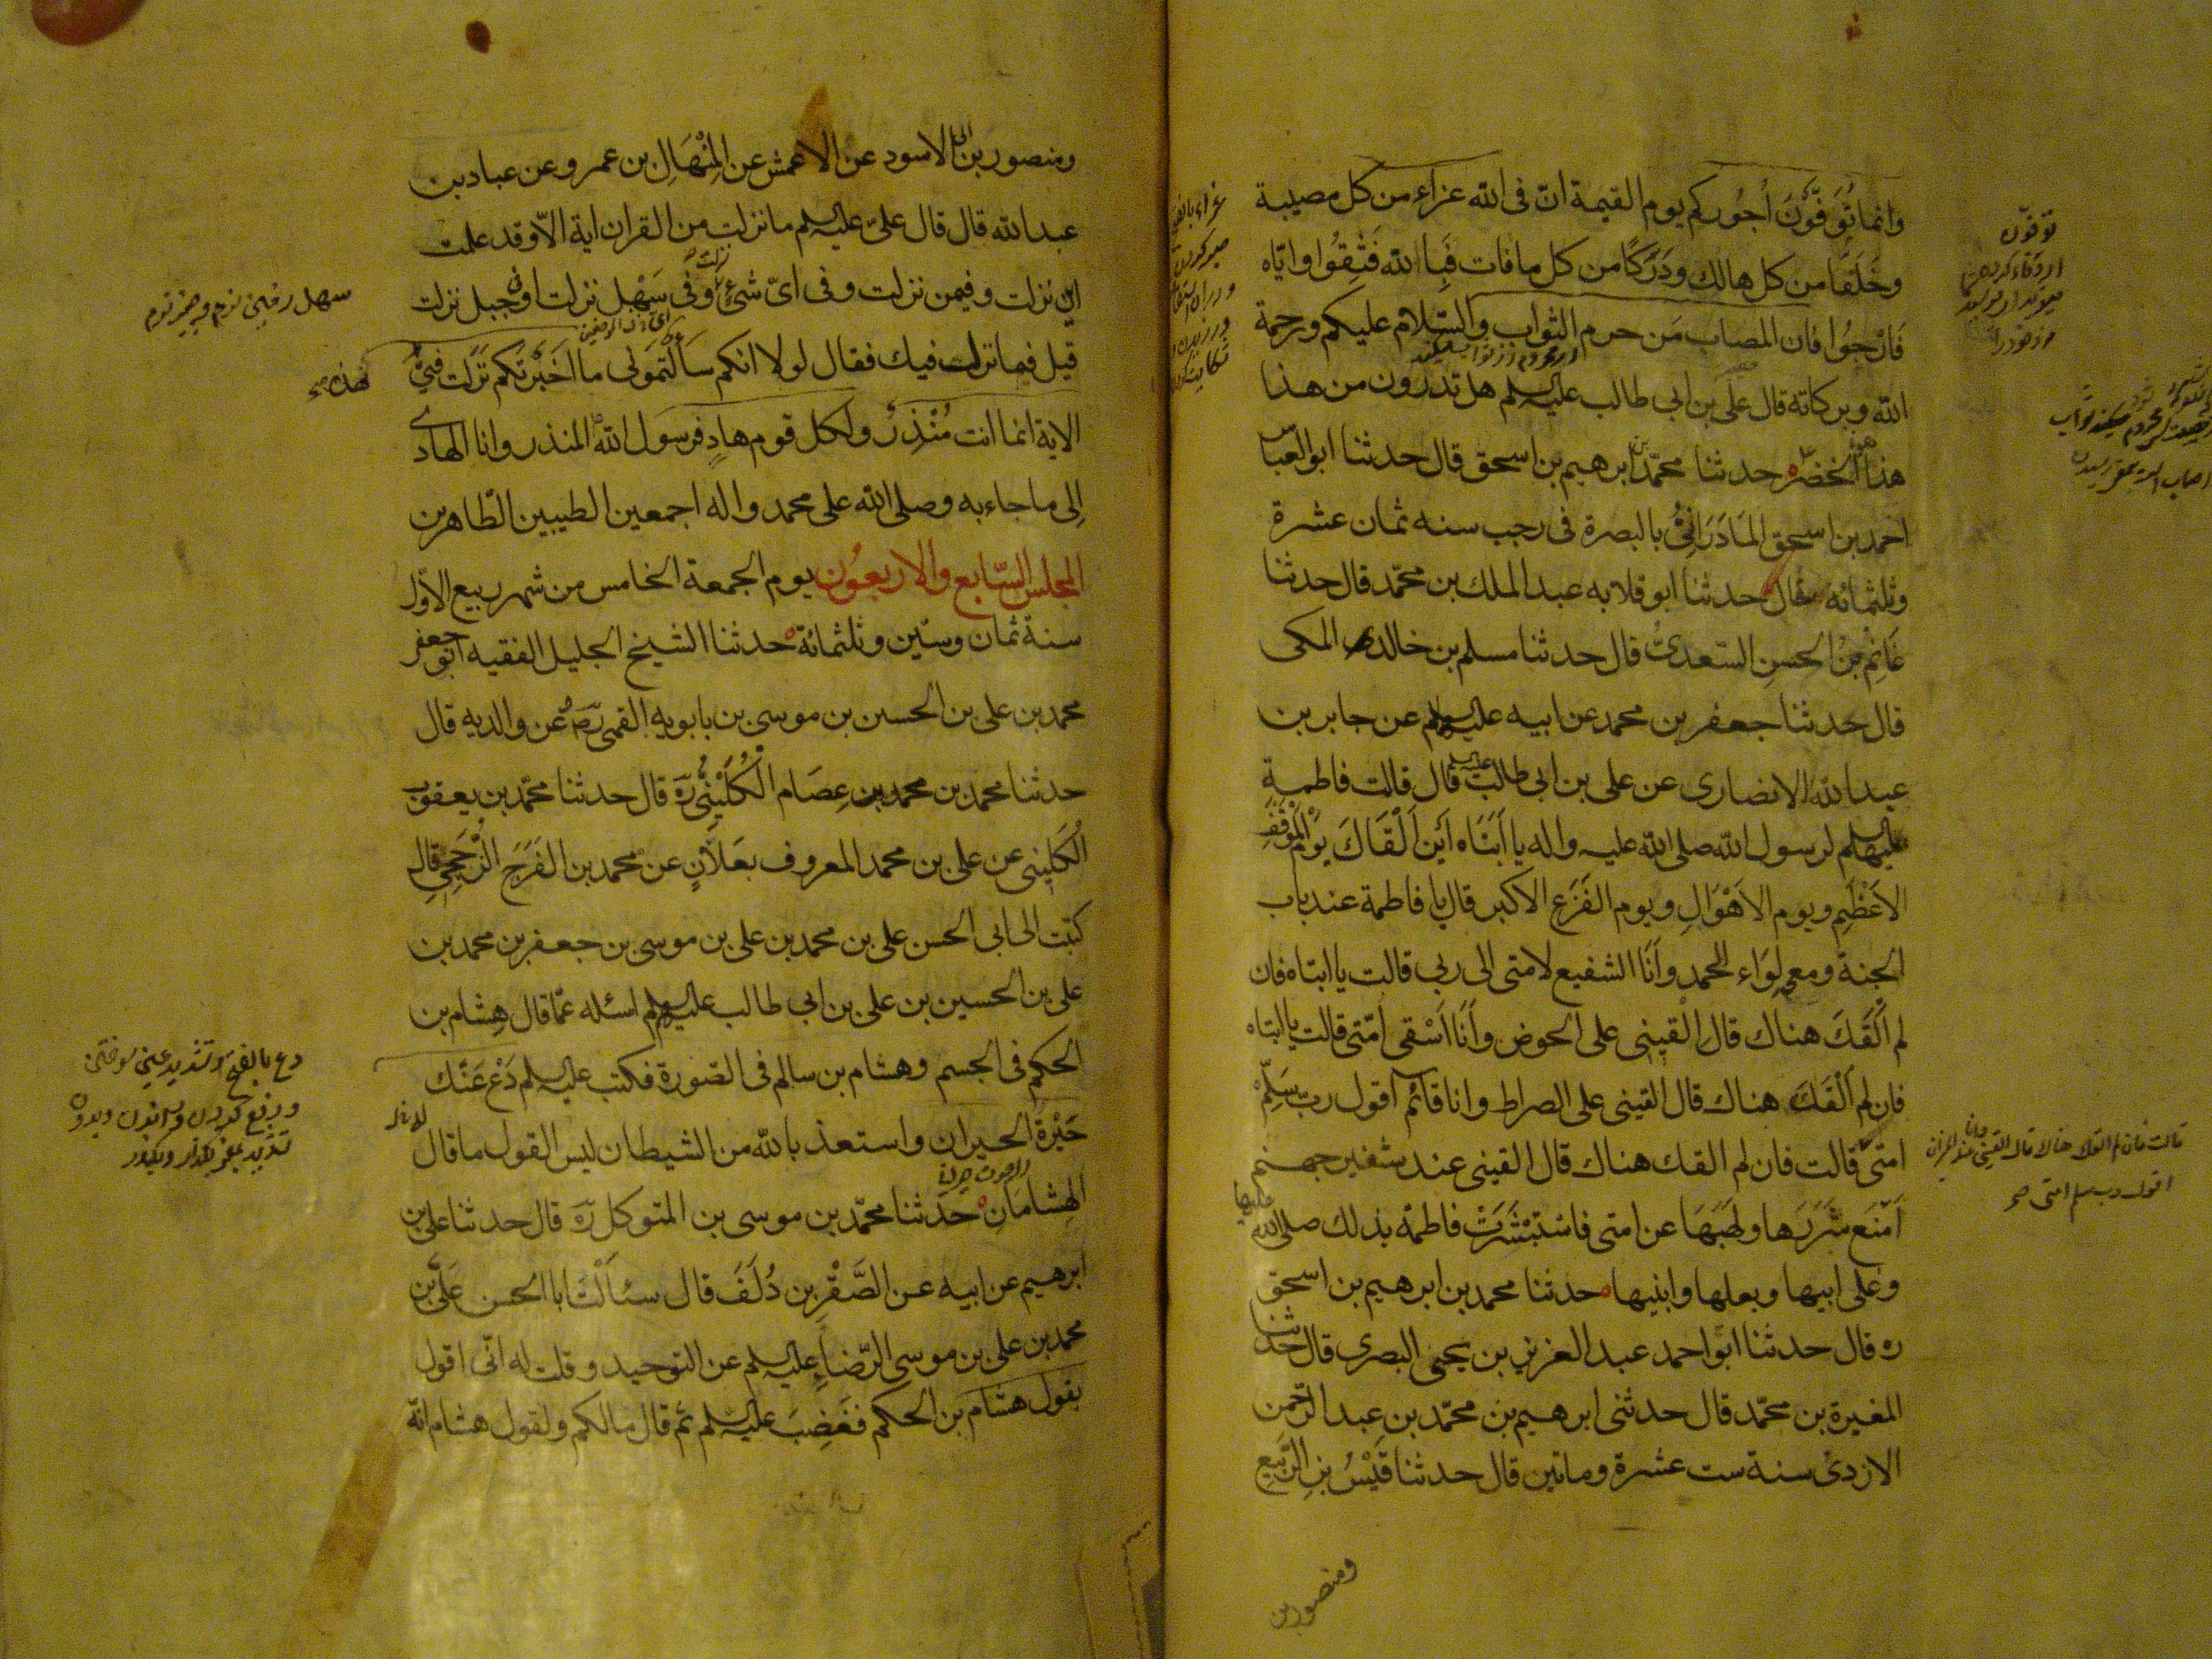 وانما تُوَفَّوْنَ اُجُوركم يوم القيمة انّ فى الله عزاء من كل مصيبة
وخَلَفًا من كل هالك ودَرَكًا من كل ما فات فَبِالله فَثِقُوا وايّاه
فَارْجُوا فان المصاب مَن حرم الثواب والسّلام عليكم ورحمة
الله وبركاته قال على بن ابى طالب عليه السلم هل تدرون من هذا
هذا هو الخضر حدثنا محمّد بن ابرهيم بن اسحق قال حدثنا ابو العباس
احمد بن اسحق المَادَرَائىُّ بالبصرة فى رجب سنه ثمان عشرة
وثلثمائه قال حدثنا ابو قلابه عبد الملك بن محمّد قال حدثنا
غَانِم بنُ الحسنِ السّعدىُّ قال حدثنا مسلم بن خالد المكى
قال حدثنا جعفر بن محمد عن ابيه عليهما السلم عن جابر بن
عبد الله الانصارى عن على بن ابى طالب عليه السلم قال قالت فاطمة
عليها السلم لرسول الله صلى الله عليه واله يا اَبَتَاه اَين اَلْقَاكَ يَوْم المَوْقِفِ
الاَعْظَمِ ويوم الاَهْوَالِ ويوم الفَزَعِ الاكبر قال يا فاطمة عند باب
الجنة ومعى لِوَاء الحمد وَاَنَا الشفيع لامتى الى ربى قالت يا ابتاه فان
لم اَلْقَكَ هناك قال اَلْقينى على الحوض وَاَنَا اَسْقى امّتى قالت يا ابتاه
فان لم اَلْقَكَ هناك قال القينى على الصراط وانا قائم اقول رب سَلِّمْ
امتى قالت فان لم القك هناك قال القينى عند شفير جهنم
اَمْنَع شَرَرَها ولَهَبَهَا عن امتى فاسْتَبْشَرَتْ فاطمة بذلك صلى الله عليها
وعلى ابيها وبعلها وابنيها حدثنا محمد بن ابرهيم بن اسحق
ره قال حدثنا ابو احمد عبد العزيز بن يحيى البصرى قال حدثنا
المغيرة بن محمّد قال حدثنى ابرهيم بن محمّد بن عبد الرّحمن
الازدى سنة ست عشرة وماتين قال حدثنا قَيْسُ بن الرَّبيع
ومنصور بن
توفّون
قالت فان لم القك هناك قال القينى وانا عند الميزان
اقول رب سلم امتى صح
ومنصور بن ابى الاسود عن الاعمش عن المِنْهَالِ بن عمرو عن عباد بن
عبد الله قال قال علىّ عليه السلم ما نزلت من القران اية الاّ وقد علمت
اين نزلت وفيمن نزلت وفى اىّ شئ نزلت وفى سَهْل نزلت او فى جبل نزلت
قيل فما نزلت فيك فقال لولا انكم سَاَلْتمونى ما اَخْبَرْتكم نَزَلت فِىَّ هذه
الاية انما انت مُنْذِرٌ ولكل قوم هادٍ فرسول الله المنذر وانا الهادى
اِلى ما جاء به وصلى الله على محمد واله اجمعين الطيبين الطّاهرين
المجلس السّابع والاربعُون يوم الجمعة الخامس من شهر ربيع الاوّل
سنة ثمان وستين وثلثمائة حدثنا الشيخ الجليل الفقيه ابو جعفر
محمد بن على بن الحسين بن موسى بن بابويه القمى رضى عن والديه قال
حدثنا محمد بن محمد بن عِصَام الْكُلَيْنِىُّ رَه قال حدثنا محمّد بن يعقوب
الكُلَينى عن على بن محمد المعروف بعَلاَّنٍ عن محمد بن الفَرَج الرُّخَّجِىّ قال
كتبت الى ابى الحسن على بن محمد بن على بن موسى بن جعفر بن محمد بن
على بن الحسين بن على بن ابى طالب عليهم السلم اسئله عمّا قال هِشَام بن
الحكم فى الجسم وهشام بن سالم فى الصّورة فكتب عليه السلم دَعْ عَنْكَ
حَيْرَة الحيران واستعذ بالله من الشيطان ليس القول ما قال
الهِشَامَانِ حدثنا محمّد بن موسى بن المتوكل رَه قال حدثنا على بن
ابرهيم عن ابيه عن الصَّقْرِ بن دُلَفَ قال سئاَلْتُ ابا الحسن عَلىَّ بن
محمد بن على بن موسى الرّضا عليه السلم عن التوحيد وقلت له انّى اقول
بقول هشام بن الحكم فغَضِبَ عليه السلم ثم قال ما لكم ولقول هشام انّه